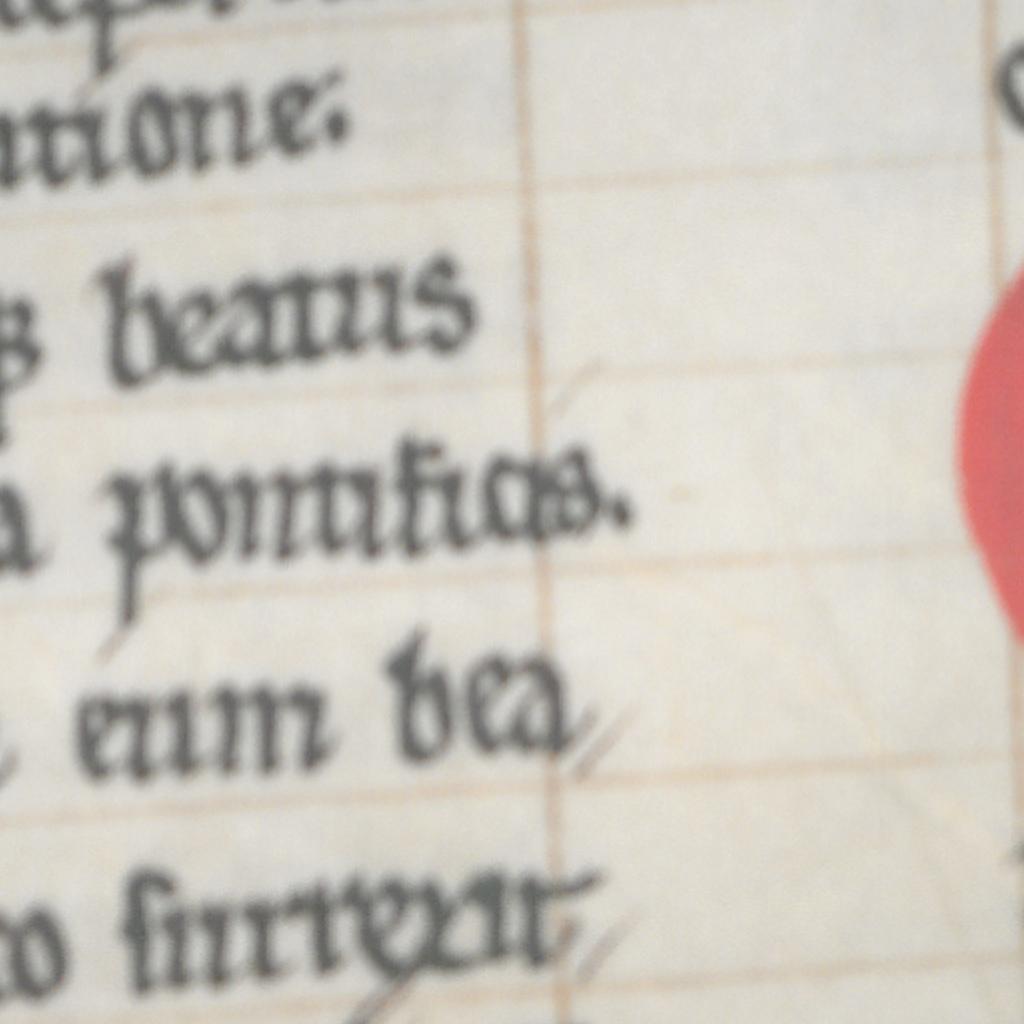 ntione.
beatus
a pontificis.
eum bea
o surrexit